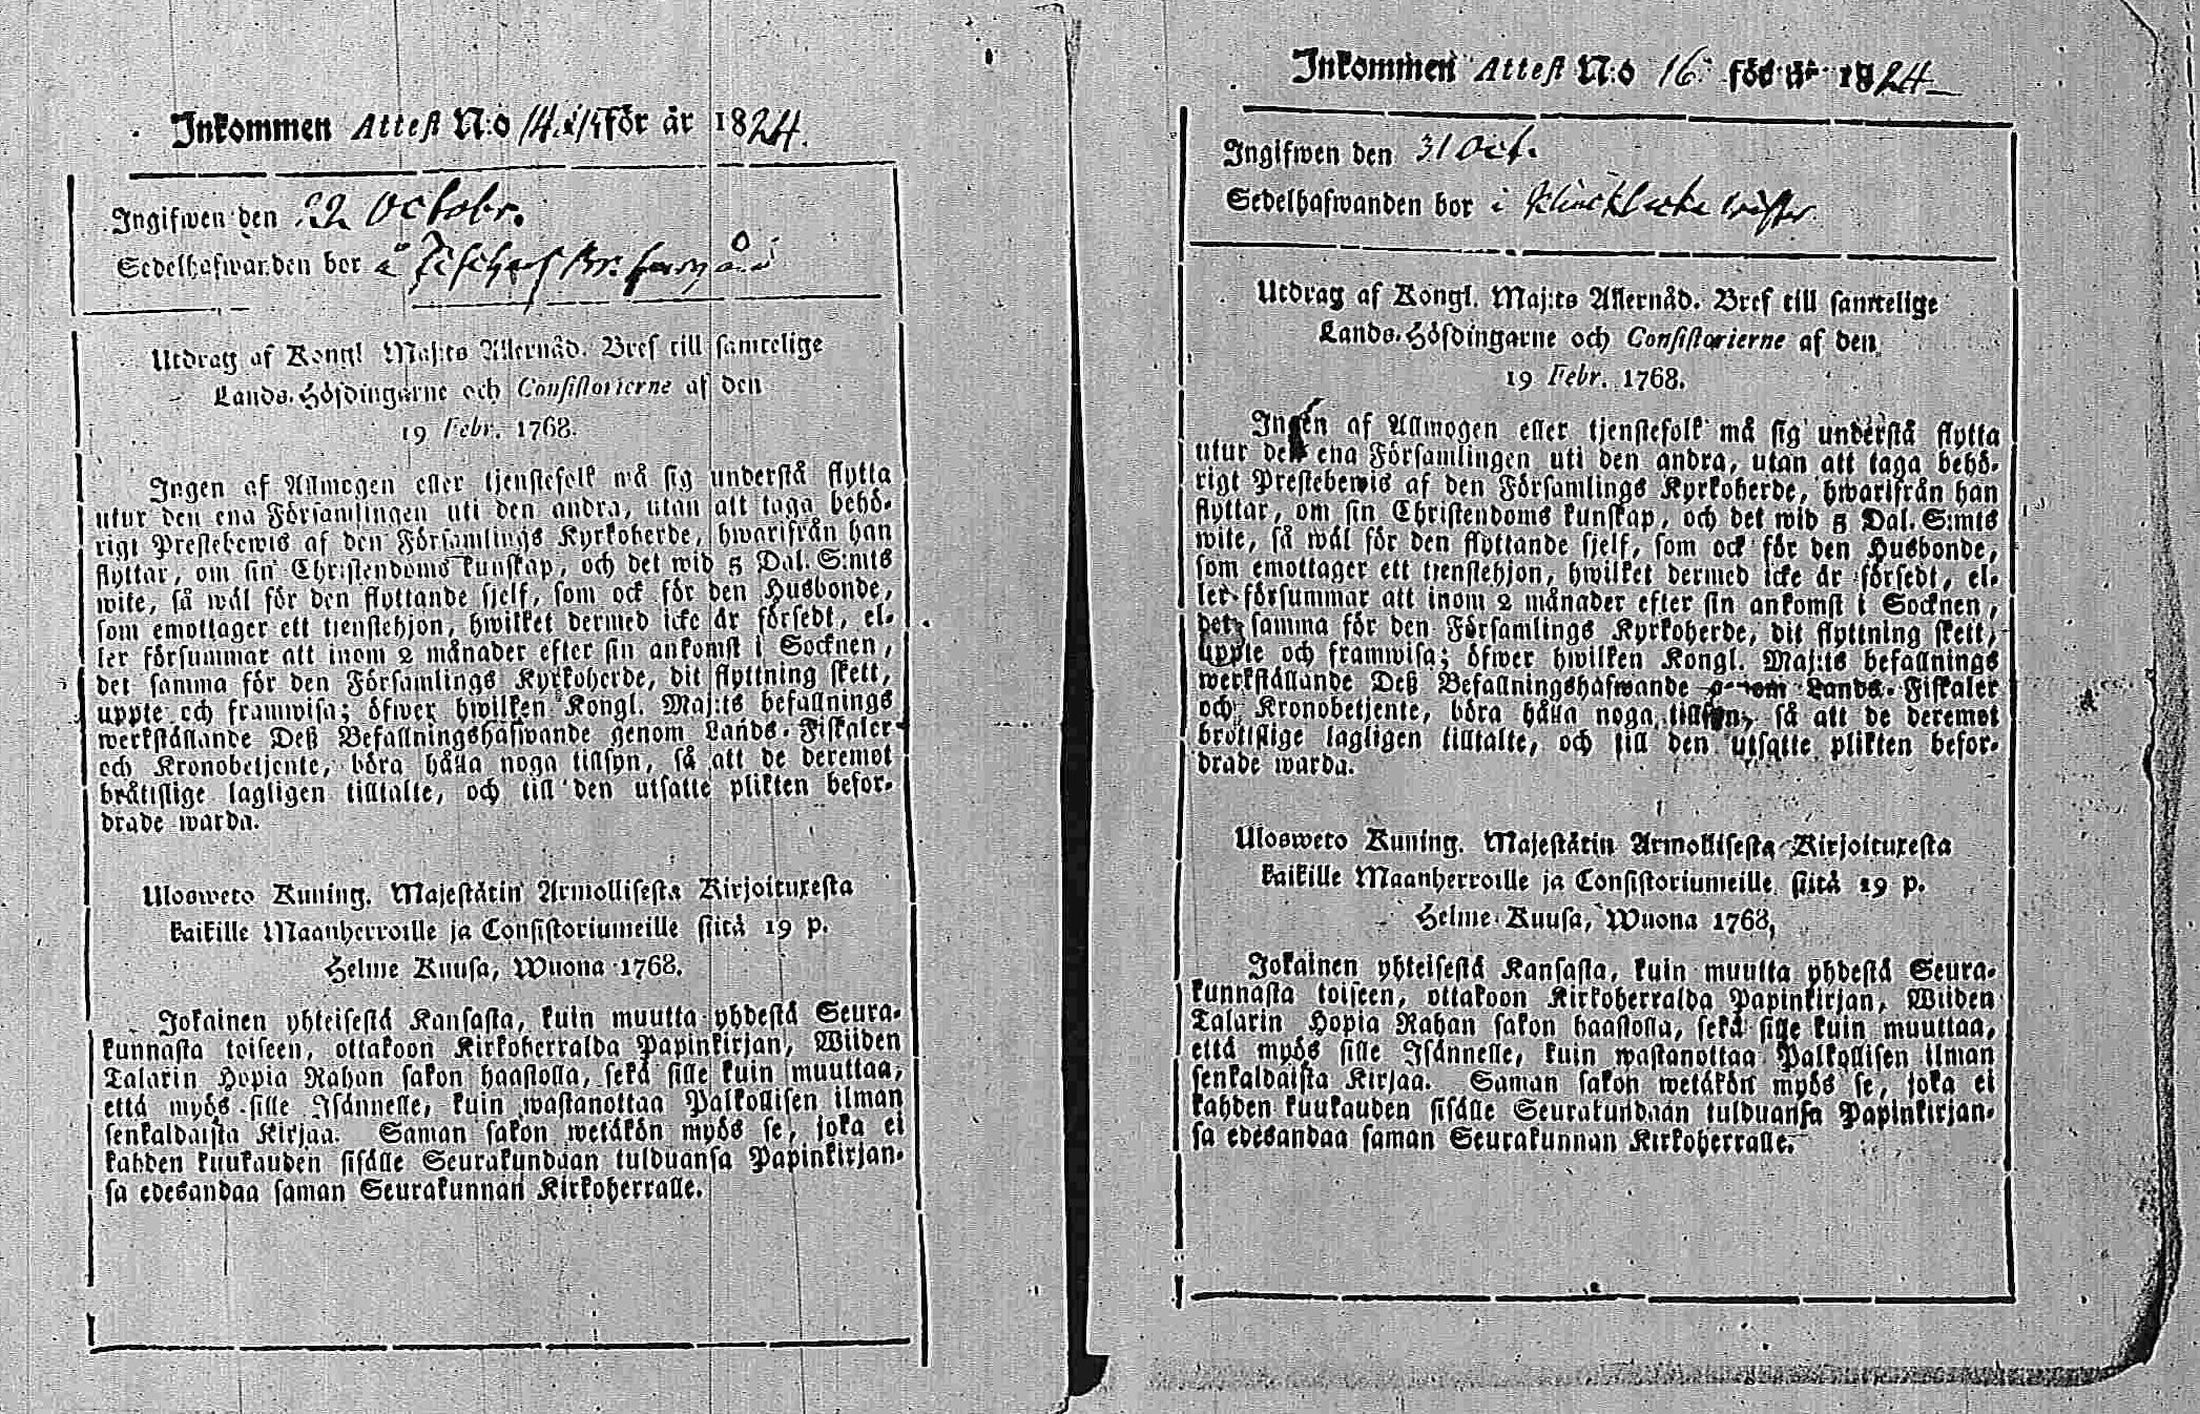 Inkommen Attest N:o 14. för år 1824.
Ingifwen den 22 Octobr.
Sedelhafwanden bor å
Utdrag af Kongl. Maj:ts Allernåd. Bref till samtelige
Lands-Höfdingarne och Consistorierne af den
19 Febr. 1768.
Ingen af Allmogen eller tjenstefolk må sig understå flytta
utur den ena Församlingen uti den andra, utan att taga behö-
rigt Prestebewis af den Församlings Kyrkoherde, hwarifrån han
flyttar, om sin Christendoms kunskap, och det wid 5 Dal. S:mts
wite, så wäl för den flyttande sjelf, som ock för den Husbonde,
som emottager ett tjenstehjon, hwilket dermed icke är försedt, el-
ler försummar att inom 2 månader efter sin ankomst i Socknen,
det samma för den Församlings Kyrkoherde, dit flyttning skett,
uppte och framwisa; öfwer hwilken Kongl. Maj:ts befallnings
werkställande Deß Befallningshafwande genom Lands-Fiskaler
och Kronobetjente, böra hålla noga tillsyn, så att de deremot
bråttslige lagligen tilltalte, och till den utsatte plikten befor-
drade warda.
Ulosweto Kuning. Majestätin Armollisesta Kirjoituxesta
kaikille Maanherroille ja Consistoriumeille siitä 19 p.
Helme Kuusa, Wuona 1768.
Jokainen yhteisestä Kansasta, kuin muutta yhdestä Seura-
kunnasta toiseen, ottakoon Kirkoherralda Papinkirjan, Wiiden
Talarin Hopia Rahan sakon haastolla, sekä sille kuin muuttaa,
että myös sille Isännelle, kuin wastanottaa Palkollisen ilman
senkaldaista Kirjaa. Saman sakon wetäkön myös se, joka ei
kahden kuukauden sisälle Seurakundaan tulduansa Papinkirjan-
sa edesandaa saman Seurakunnan Kirkoherralle.
Inkommen Attest N:o 16. för år 1824
Ingifwen den 31 Oct.
Sedelhafwanden bor i
Utdrag af Kongl. Maj:ts Allernåd. Bref till samtelige
Lands-Höfdingarne och Consistorierne af den
19 Febr. 1768.
Ingen af Allmogen eller tjenstefolk må sig understå flytta
utur den ena Församlingen uti den andra, utan att taga behö-
rigt Prestebewis af den Församlings Kyrkoherde, hwarifrån han
flyttar, om sin Christendoms kunskap, och det wid 5 Dal. S:mts
wite, så wäl för den flyttande sjelf, som ock för den Husbonde,
som emottager ett tjenstehjon, hwilket dermed icke är försedt, el-
ler försummar att inom 2 månader efter sin ankomst i Socknen,
det samma för den Församlings Kyrkoherde, dit flyttning skett,
uppte och framwisa; öfwer hwilken Kongl. Maj:ts befallnings
werkställande Deß Befallningshafwande genom Lands-Fiskaler
och Kronobetjente, böra hålla noga tillsyn, så att de deremot
bråttslige lagligen tilltalte, och till den utsatte plikten befor-
drade warda.
Ulosweto Kuning. Majestätin Armollisesta Kirjoituxesta
kaikille Maanherroille ja Consistoriumeille siitä 19 p.
Helme Kuusa, Wuona 1768.
Jokainen yhteisestä Kansasta, kuin muutta yhdestä Seura-
kunnasta toiseen, ottakoon Kirkoherralda Papinkirjan, Wiiden
Talarin Hopia Rahan sakon haastolla, sekä sille kuin muuttaa,
että myös sille Isännelle, kuin wastanottaa Palkollisen ilman
senkaldaista Kirjaa. Saman sakon wetäkön myös se, joka ei
kahden kuukauden sisälle Seurakundaan tulduansa Papinkirjan-
sa edesandaa saman Seurakunnan Kirkoherralle.